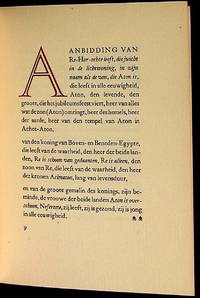 AANBIDDING VAN
Re-Har-achte leeft, die juicht
in de lichtwoning, in zijn
naam als de zon, die Aton is,
die leeft in alle eeuwigheid,
Aton, den levende, den
groote, die het jubileumsfeest viert, heer van alles
wat de zon (Aton) omringt, heer des hemels, heer
der aarde, heer van den tempel van Aton in
Achet-Aton,
van den koning van Boven- en Beneden-Egypte,
die leeft van de waarheid, den heer der beide lan-
den, Re is schoon van gedaanten, Re is alleen, den
zoon van Re, die leeft van de waarheid, den heer
der kronen Achnaton, lang van levensduur,
en van de groote gemalin des konings, zijn be-
minde, de vrouwe der beide landen Aton is over-
schoon, Nefretete, zij leeft, zij is gezond, zij is jong
in alle eeuwigheid.
9